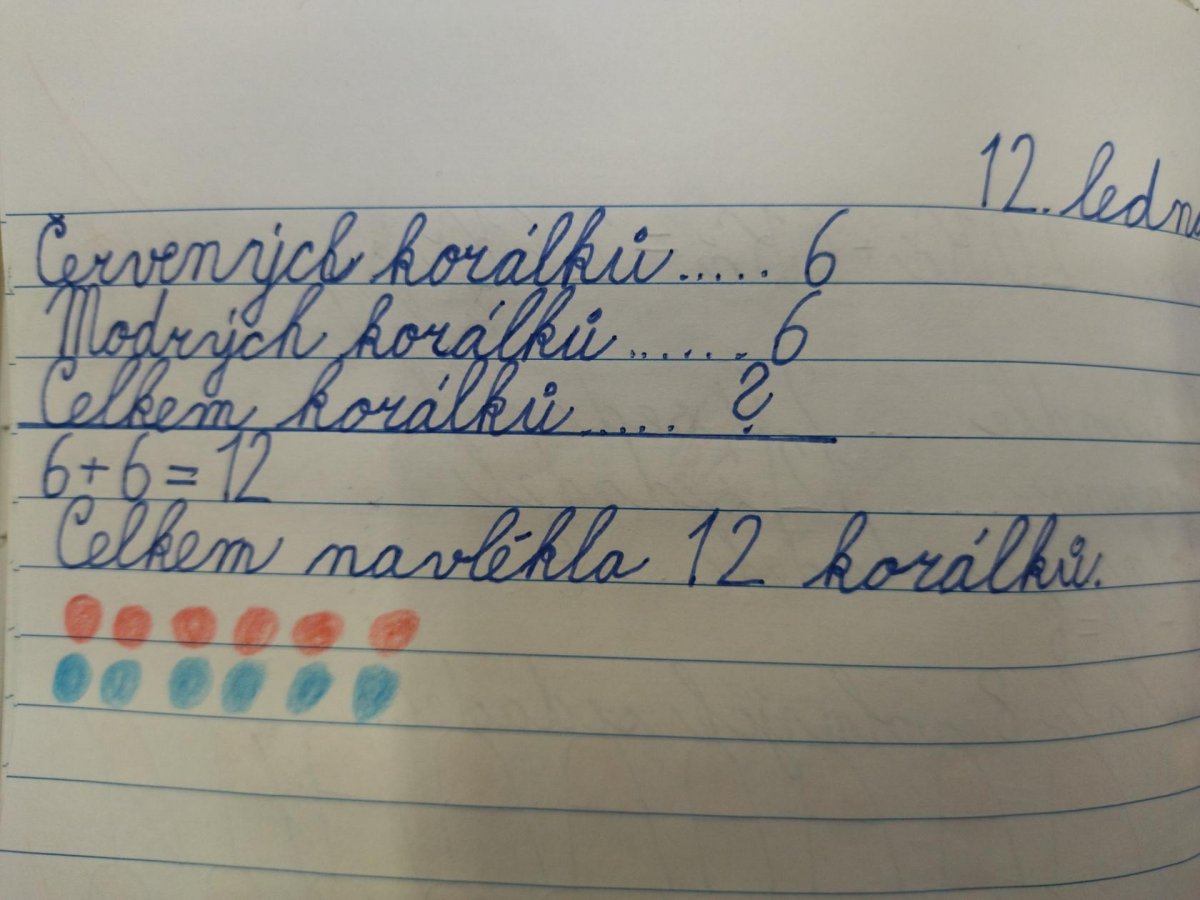 12. ledna
Červených korálků..... 6
Modrých korálků....... 6
Celkem korálků..... ?
6+6=12
Celkem navlékla 12 korálků.